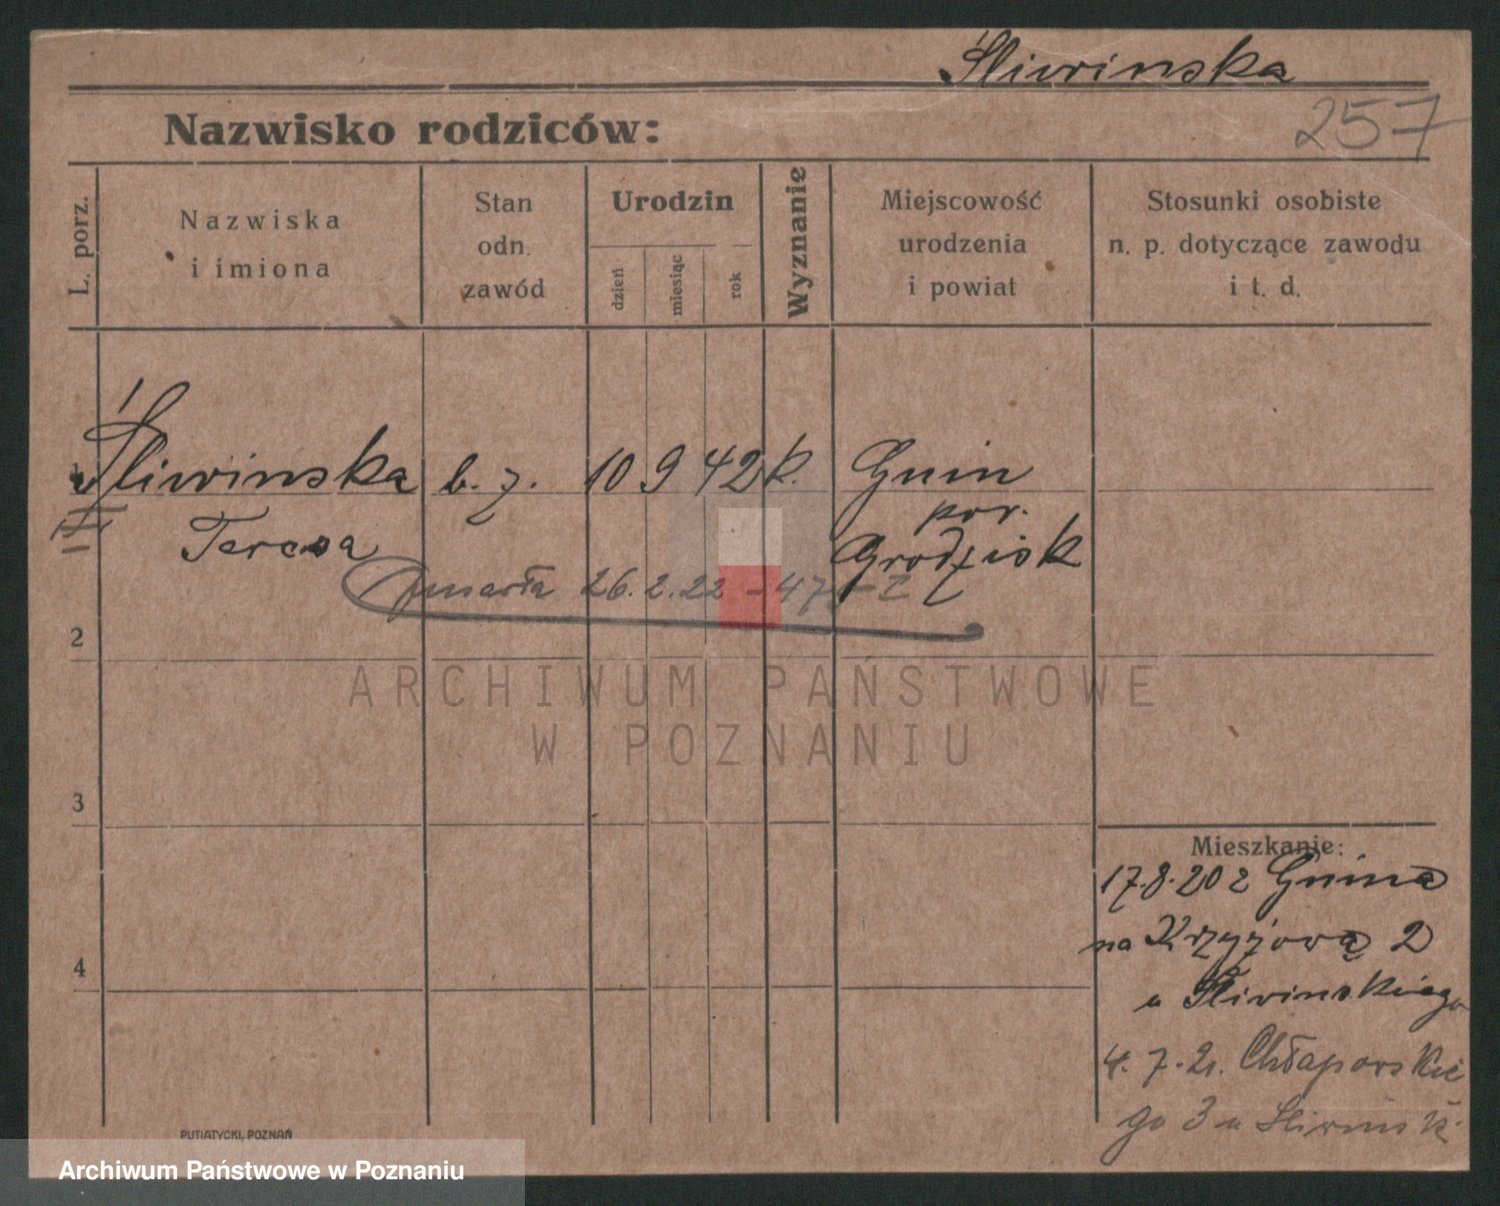 Śliwinska
257
Nazwisko rodziców:
L. porz.
Nazwiska
i imiona
Stan
odn.
zawód
Urodzin
dzień
miesiąc
rok
Wyznanie
Miejscowość
urodzenia
i powiat
Stosunki osobiste
n. p. dotyczące zawodu
i t. d.
1 Śliwinska b. z. 10 9 42 k. Gnin
pow.
Teresa Grodzisk
zmarła 26.2.22 - 47
2
ARCHIWUM PAŃSTWOWE
W POZNANIU
3
Mieszkanie:
17.8.20 z Gnina
na Krzyżową 2
u Śliwinskiego
4
4.7.21. Chłapowskie
go 3 u Sliwinsk.
PUTIATYCKI, POZNAŃ
Archiwum Państwowe w Poznaniu